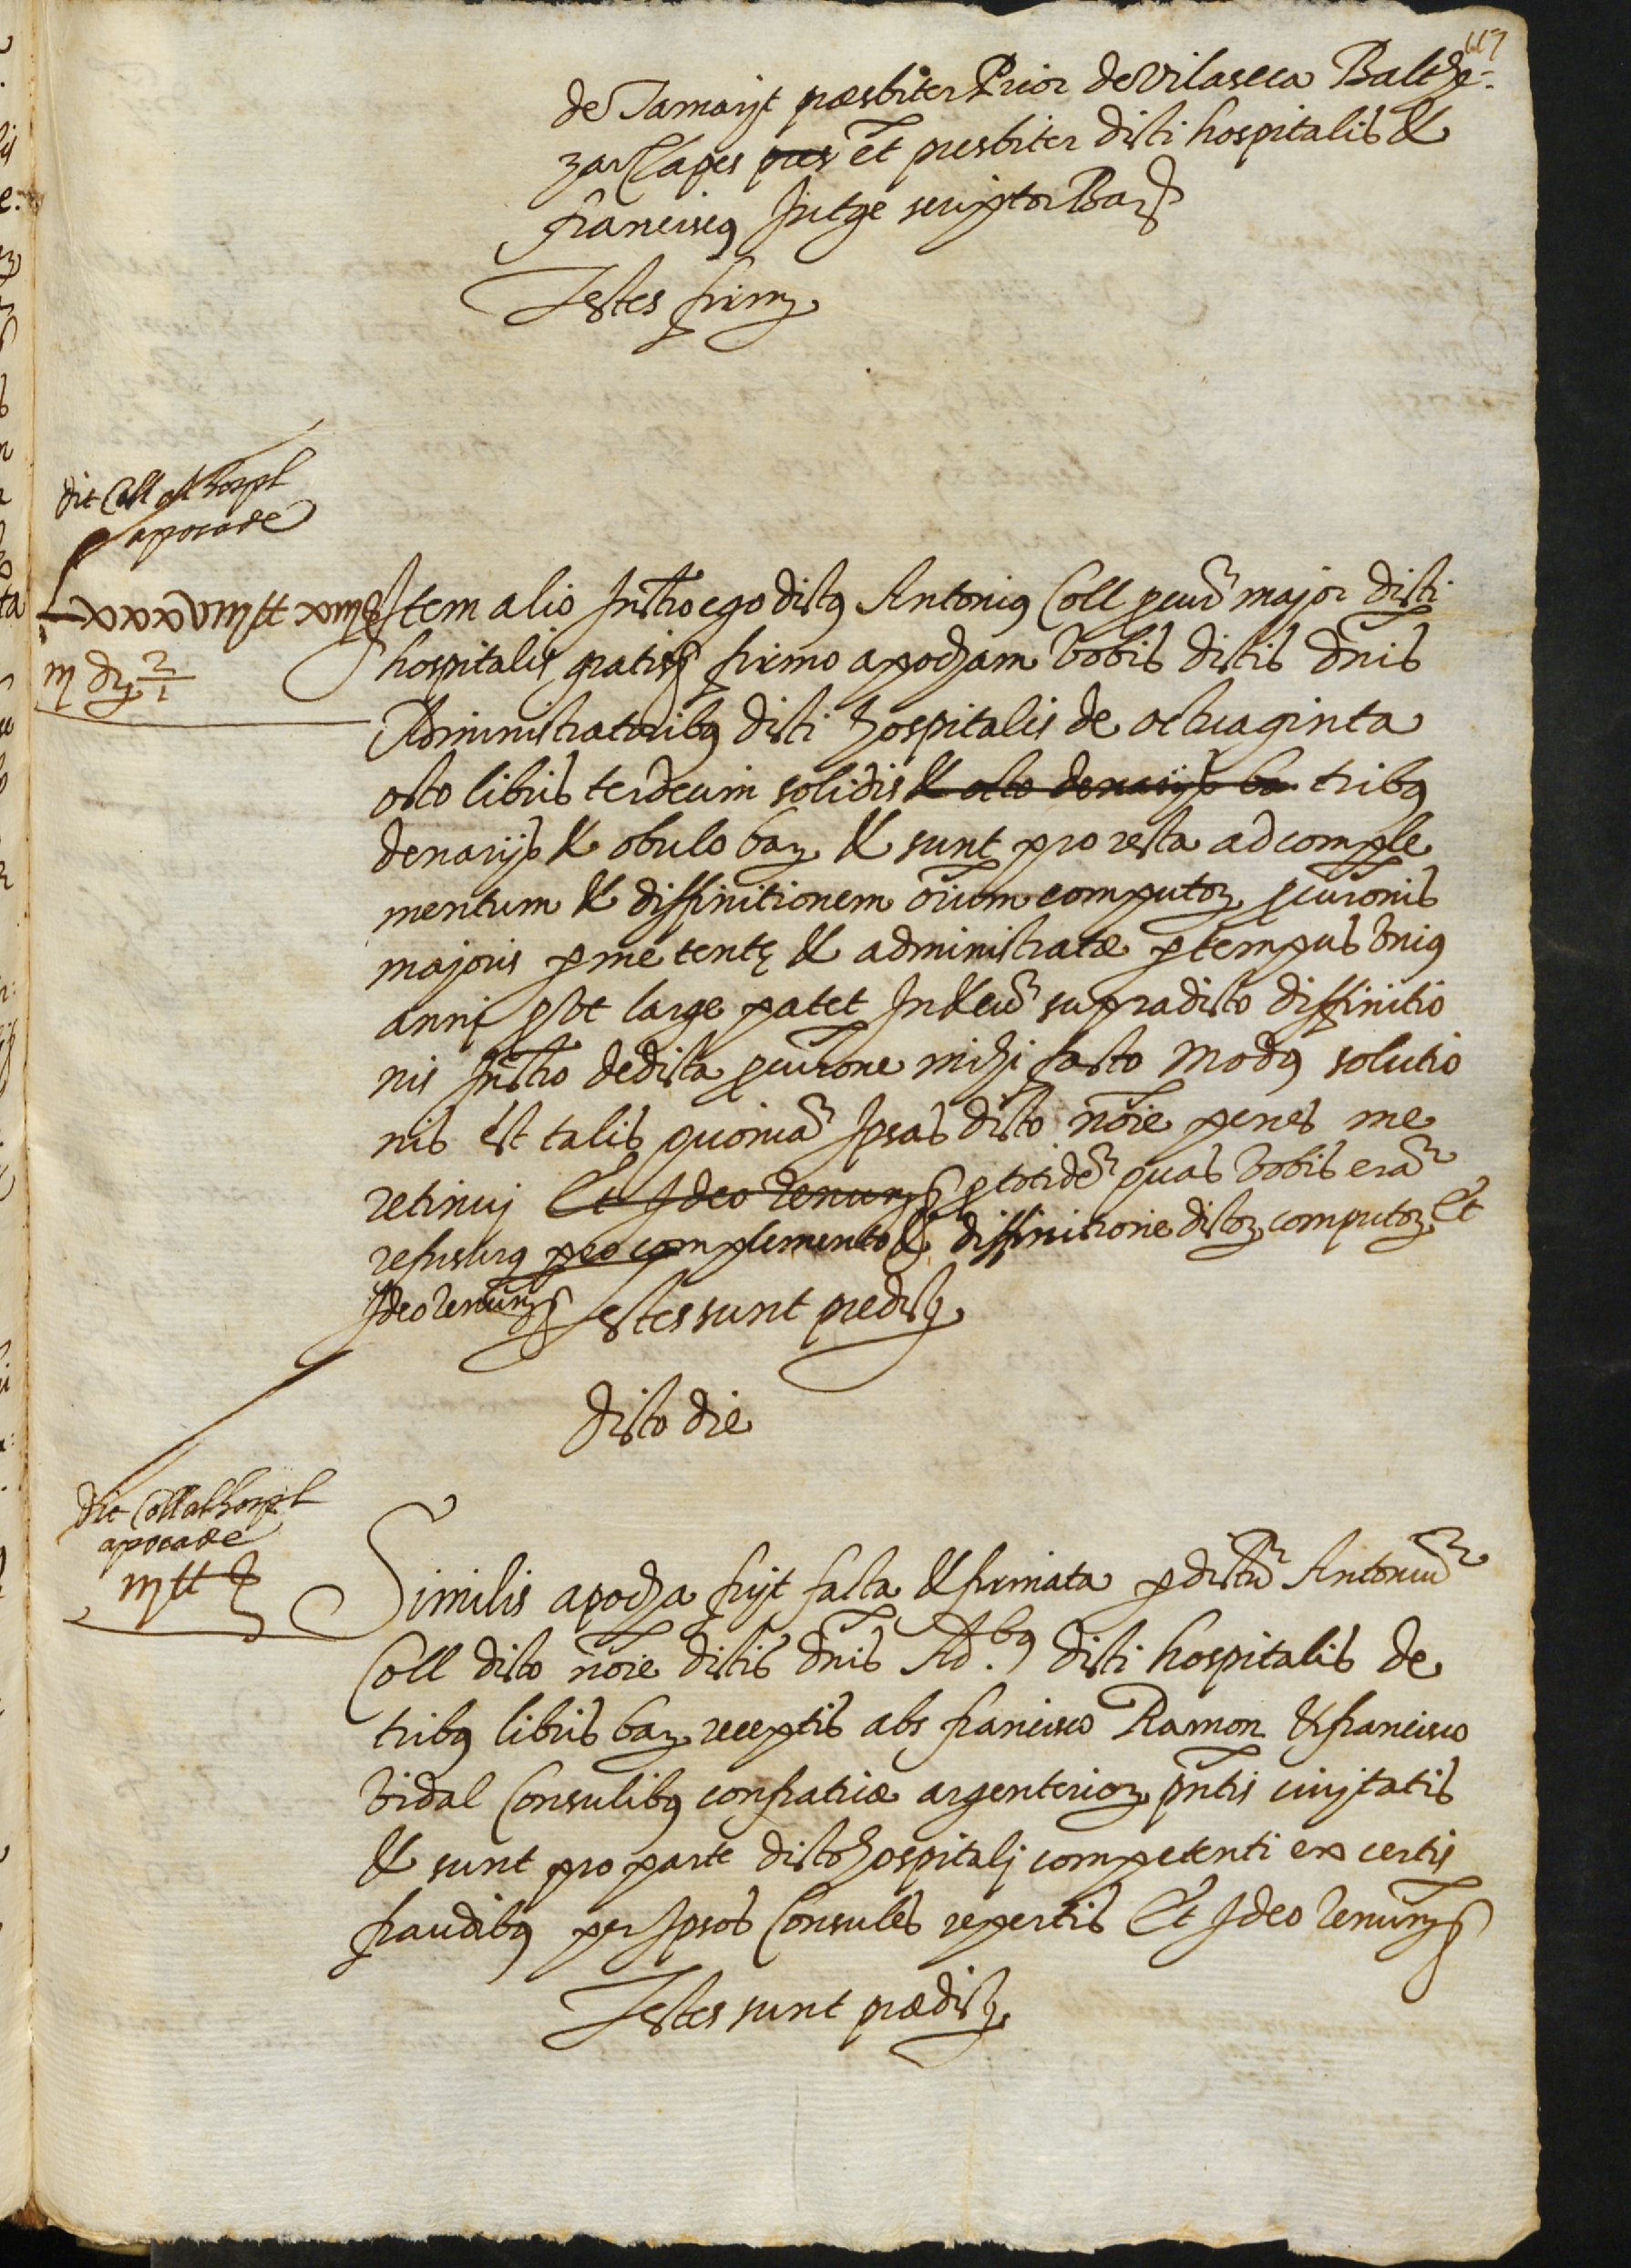 117
de Tamarit præsbiter Prior de Vilaseca Balthe-
zar Clapes pres et presbiter dicti hospitalis &
franciscus Jutge scriptor Barᵉ
Testes firmᵉ
dit Coll al hospl
apocade
Lxxxviii ll xiii ß
iii dʳˢ 2/1
Item alio Inſtro ego dictus Antonius Coll pcur̃ major dicti
hospitalis gratis & firmo apocham vobis dictis dñis
Administratoribus dicti hospitalis de octuaginta
octo libris terdecim solidis & octo denarijs ba tribus
denarijs & obulo barᵉ & sunt pro resta ad comple
mentum & diffinitionem oĩum computorᵉ pcur̃onis
majoris p me tentę & administratæ p tempus vnius
anni pͬ vt large patet In & cũ supradicto diffinitio
nis Inſtro de dicta pcur̃one mihi facto Modus solutio
nis est talis quoniã Ipsas dicto nõie penes me
retinuj Et Ideo renuncᵒ & p totidẽ quas vobis erã
refusurus pro complemento & diffinitione dictorᵉ computorᵉ Et
Ideo renuncᵒ & Testes sunt predictᵉ
dicto die
dit Coll al hospl
apocade
iii ll ß
Similis apocha fuit facta & firmata p dictũ Antoniũ
Coll dicto nõie dictis dñis Ad.ᵇᵘˢ dicti hospitalis de
tribus libris barᵉ receptis abs francisco Ramon & francisco
Vidal Consulibus confratriæ argenteriorᵉ pñtis ciujtatis
& sunt pro parte dicto hospitalj competenti ex certis
fraudibus per Ipsos Consules repertis Et Ideo renuncᵒ &
Testes sunt prædictᵉ